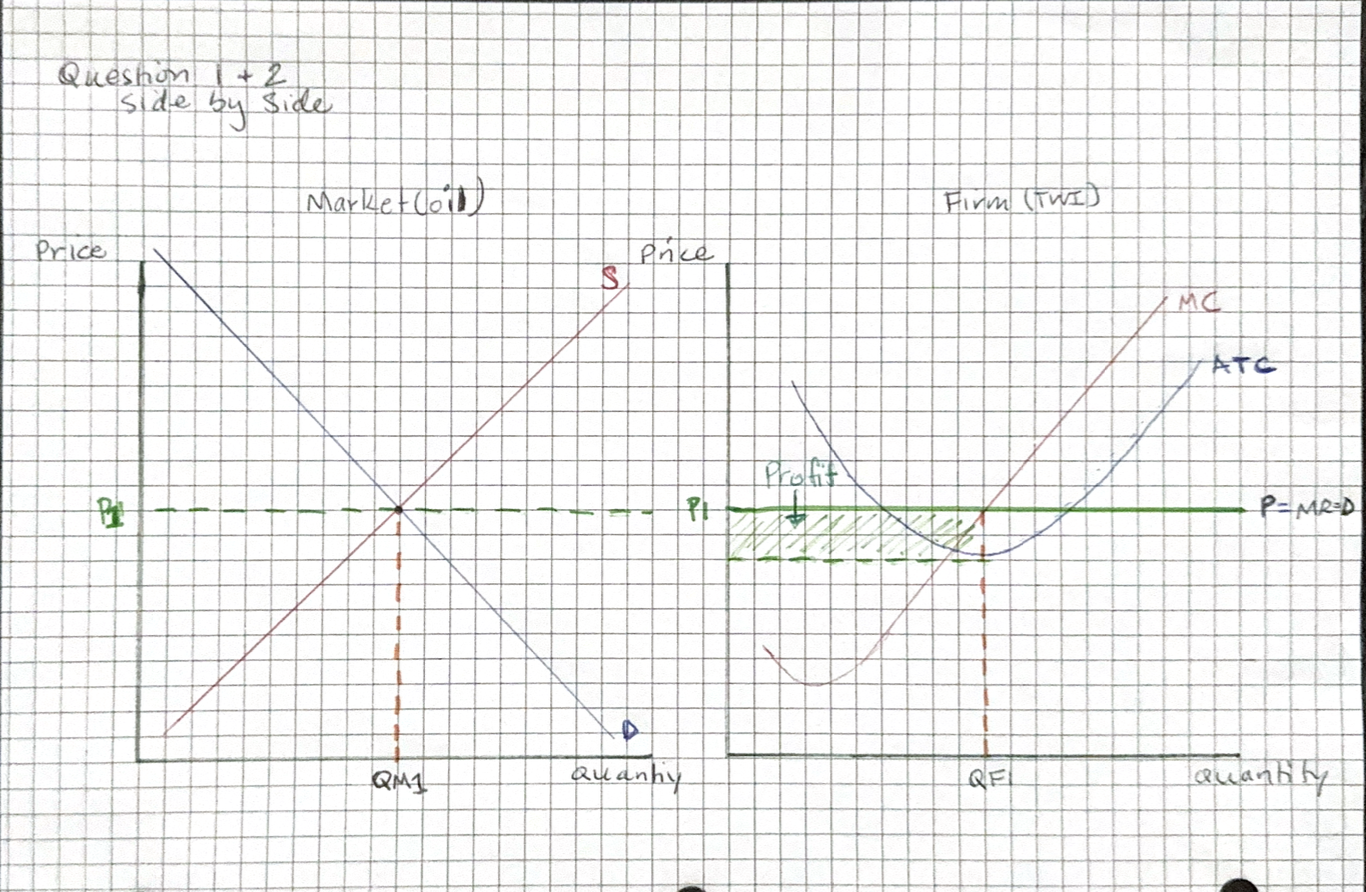 Question 1 + 2
side by side
Market (oil)
Firm (TWI)
Price
S
Price
MC
ATC
Profit
P1
P1
P=MR=D
D
QM1
Quantiy
QF1
Quantity